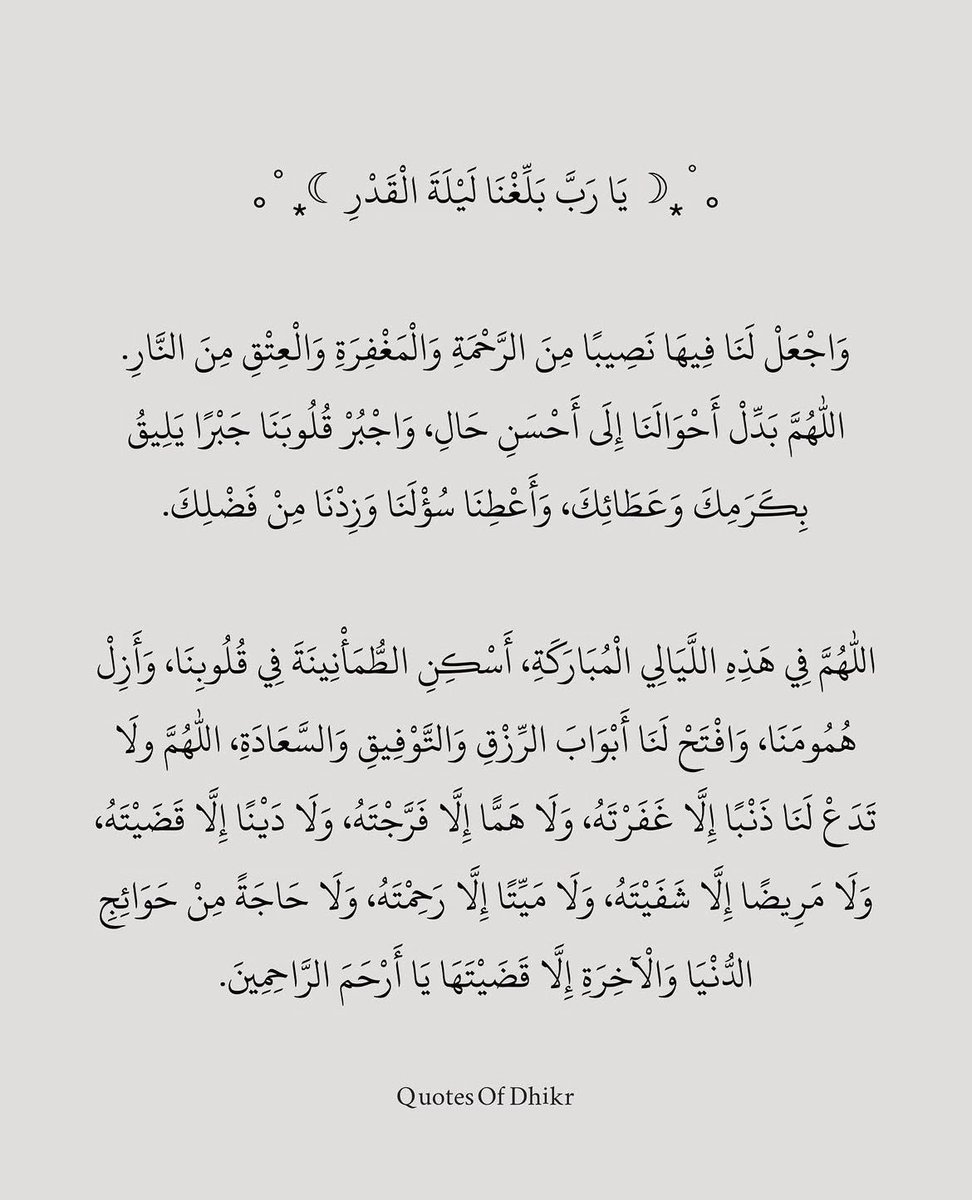 ｡ﾟ⁎☽ يَا رَبَّ بَلِّغْنَا لَيْلَةَ الْقَدْرِ ☾⁎ﾟ｡
وَاجْعَلْ لَنَا فِيهَا نَصِيبًا مِنَ الرَّحْمَةِ وَالْمَغْفِرَةِ وَالْعِتْقِ مِنَ النَّارِ.
اللَّهُمَّ بَدِّلْ أَحْوَالَنَا إِلَى أَحْسَنِ حَالِ، وَاجْبُرْ قُلُوبَنَا جَبْرًا يَلِيقُ
بِكَرَمِكَ وَعَطَائِكَ، وَأَعْطِنَا سُؤْلَنَا وَزِدْنَا مِنْ فَضْلِكَ.
اللَّهُمَّ فِي هَذِهِ اللَّيَالِي الْمُبَارَكَةِ، أَسْكِنِ الطُّمَأْنِينَةَ فِي قُلُوبِنَا، وَأَزِلْ
هُمُومَنَا، وَافْتَحْ لَنَا أَبْوَابَ الرِّزْقِ وَالتَّوْفِيقِ وَالسَّعَادَةِ، اللَّهُمَّ ولَا
تَدَعْ لَنَا ذَنْبًا إِلَّا غَفَرْتَهُ، وَلَا هَمًّا إِلَّا فَرَّجْتَهُ، وَلَا دَيْنًا إِلَّا قَضَيْتَهُ،
وَلَا مَرِيضًا إِلَّا شَفَيْتَهُ، وَلَا مَيِّتًا إِلَّا رَحِمْتَهُ، وَلَا حَاجَةً مِنْ حَوَائِجِ
الدُّنْيَا وَالْآخِرَةِ إِلَّا قَضَيْتَهَا يَا أَرْحَمَ الرَّاحِمِينَ.
Quotes Of Dhikr